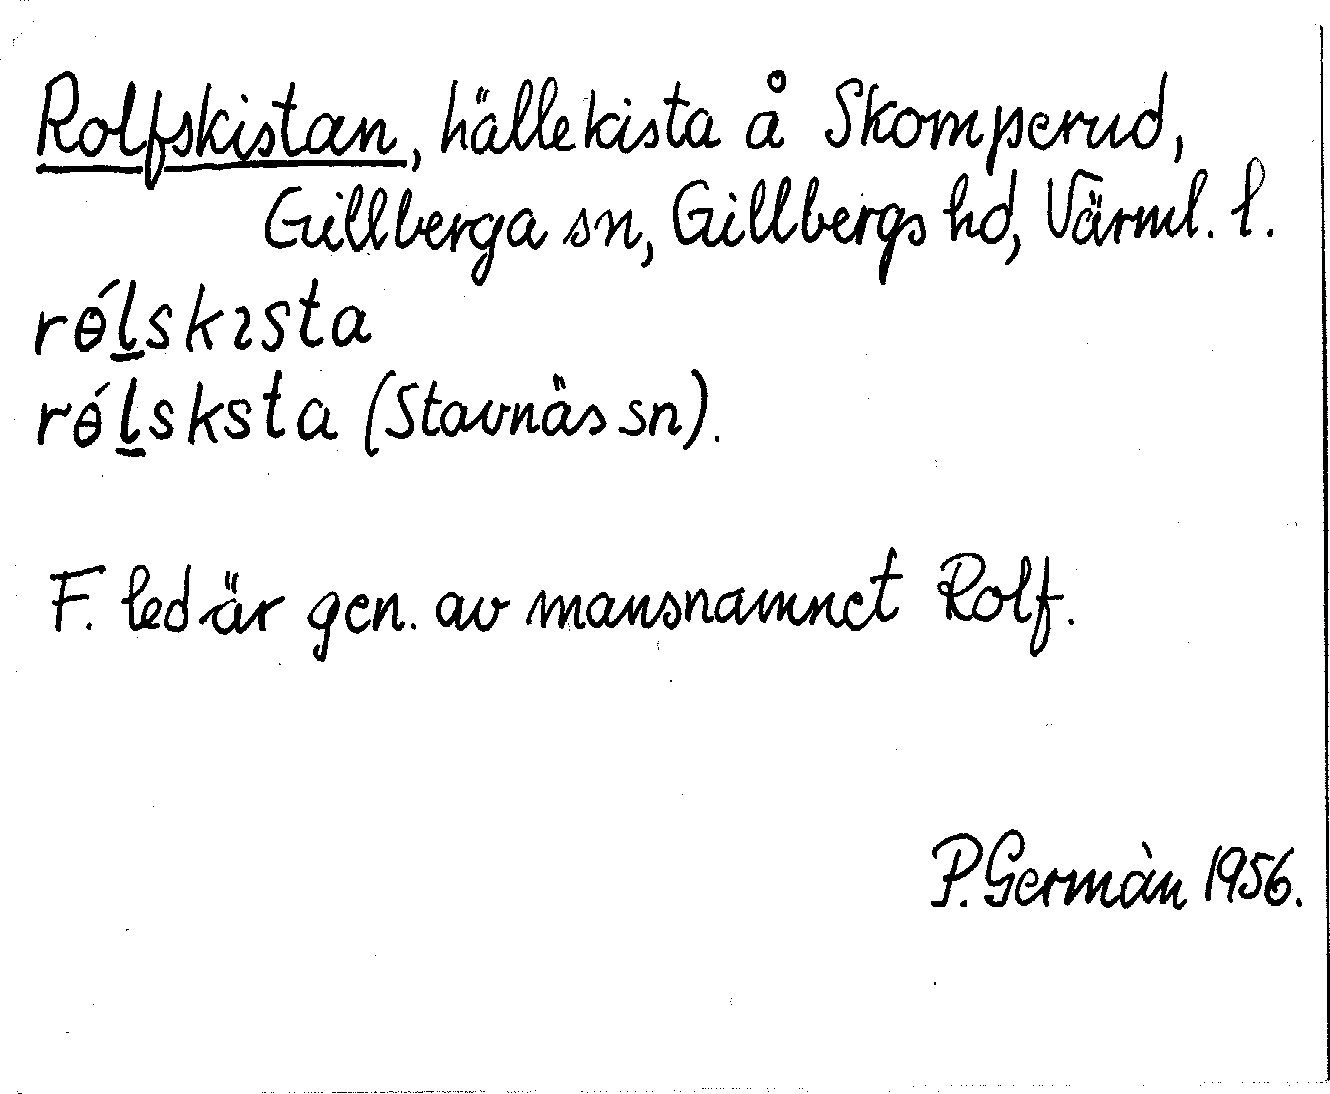 Rolfskistan, hällekista å Skomperud,
Gillberga sn, Gillbergs hd, Värml. l.
rǿl̲skɩsta
rǿl̲sksta (Stavnäs sn).
F. led är gen. av mansnamnet Rolf.
P. Germàn 1956.